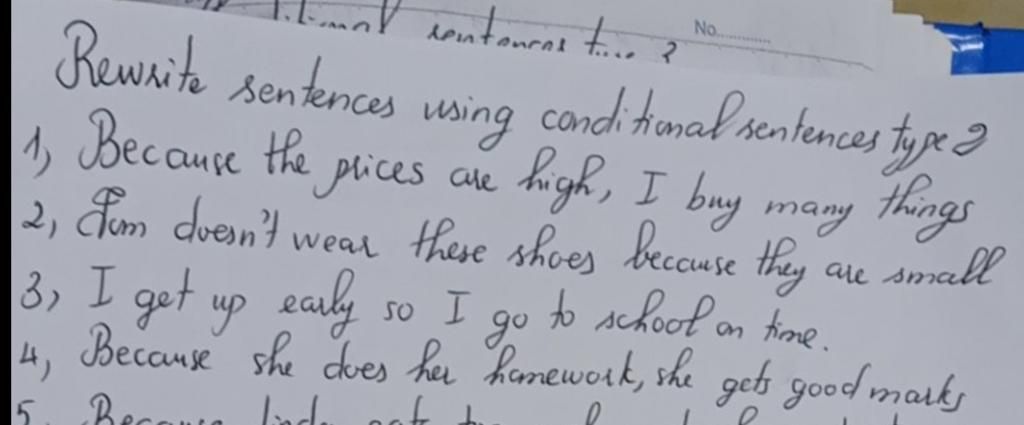 No............
sentences
Rewrite sentences using conditional sentences type 2
1, Because the prices are high, I buy many things
2, Tom doesn't wear these shoes because they are small
3, I get up early so I go to school on time.
4, Because she does her homework, she gets good marks
5. Because